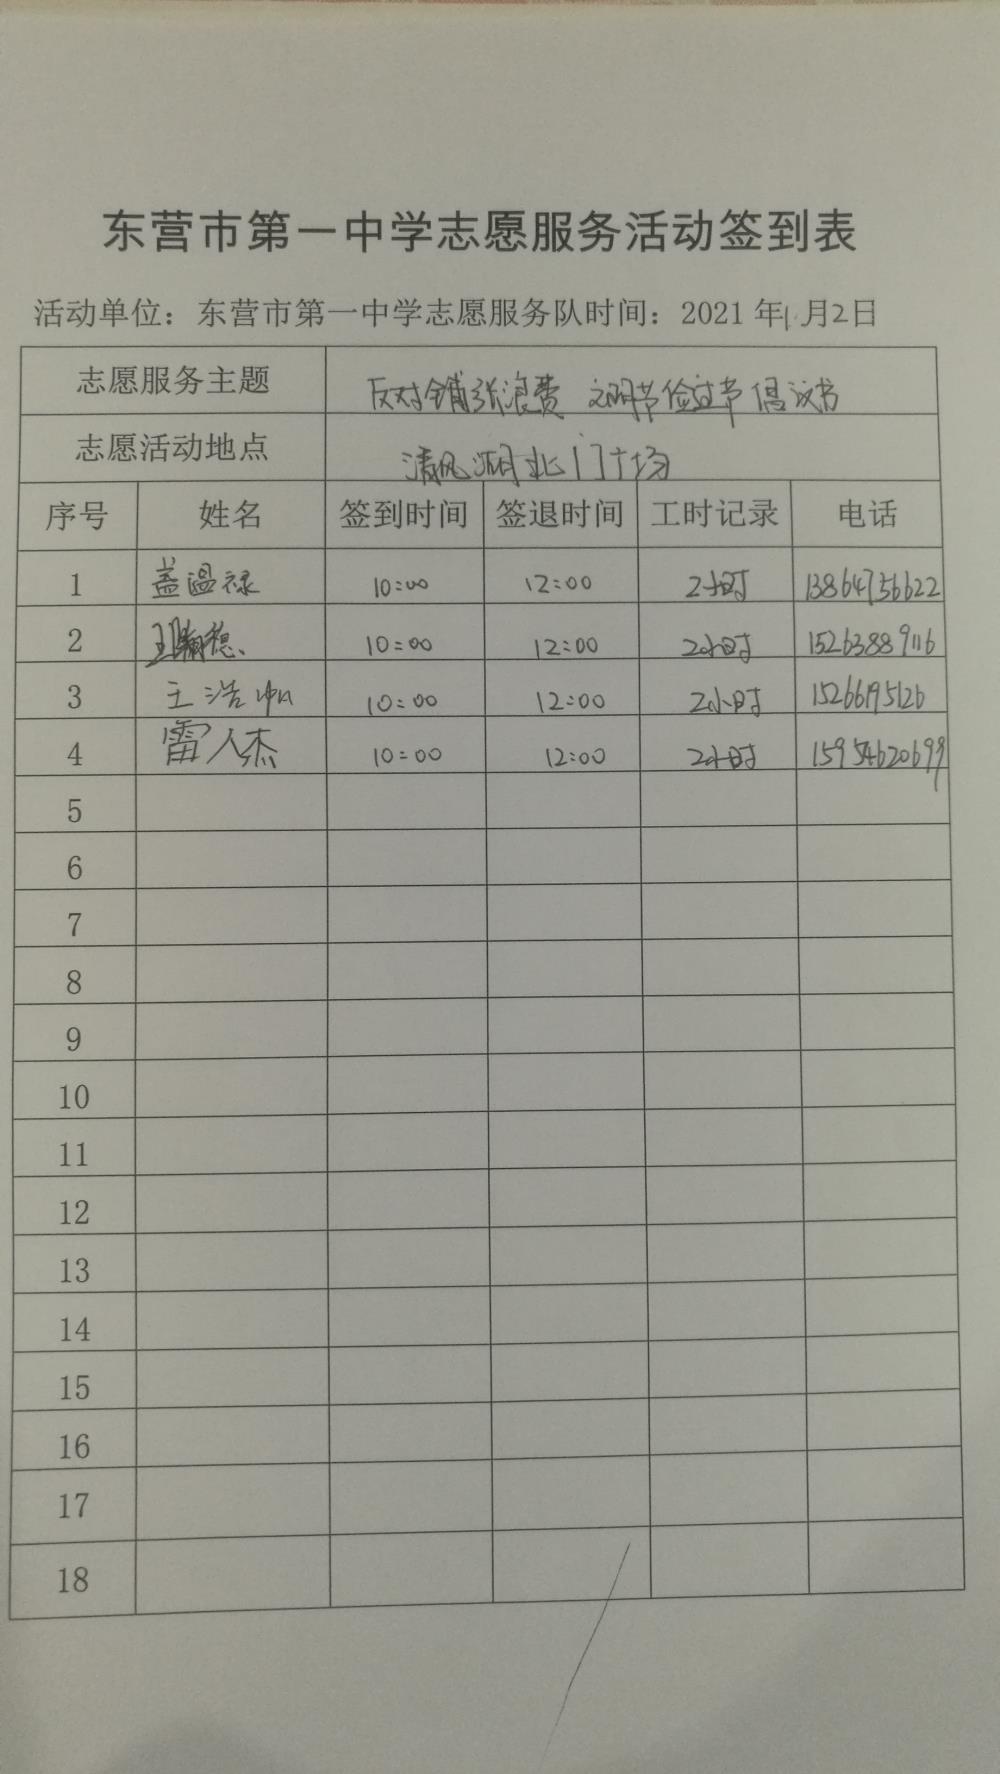 东营市第一中学志愿服务活动签到表
活动单位：东营市第一中学志愿服务队时间：2021年1月2日
志愿服务主题 反对铺张浪费 文明节俭过节 倡议书
志愿活动地点 清风湖北门广场
序号 姓名 签到时间 签退时间 工时记录 电话
1 盖温禄 10:00 12:00 2小时 13864756622
2 10:00 12:00 2小时 15263889116
3 王浩帆 10:00 12:00 2小时 15266195120
4 雷人杰 10:00 12:00 2小时 15954620699
5
6
7
8
9
10
11
12
13
14
15
16
17
18